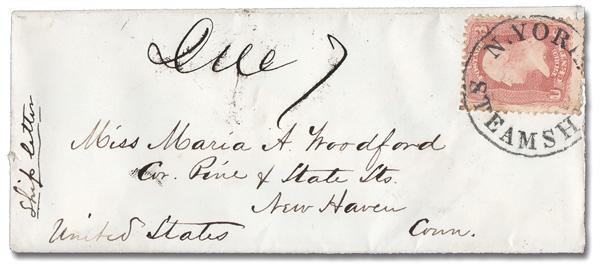 Due 7
N. YORK
STEAMSH
Ship letter
Miss Maria A. Woodford
Cor. Pine & State Sts.
New Haven
United States Conn.